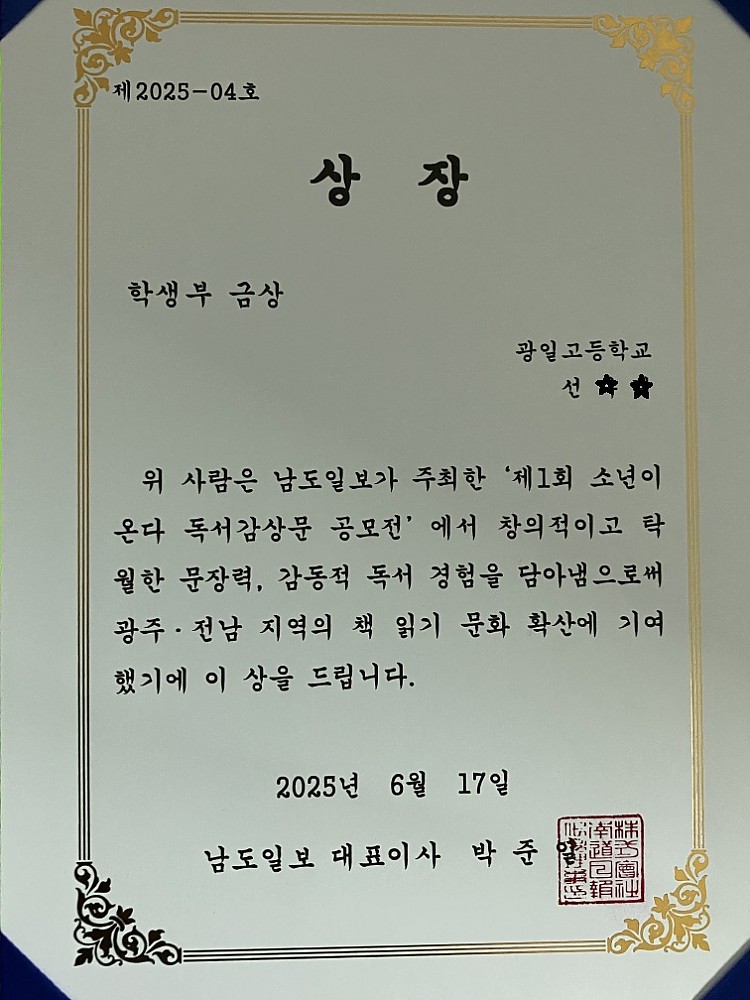 제2025-04호
상 장
학생부 금상
광일고등학교
선
위 사람은 남도일보가 주최한 '제1회 소년이
온다 독서감상문 공모전' 에서 창의적이고 탁
월한 문장력, 감동적 독서 경험을 담아냄으로써
광주·전남 지역의 책 읽기 문화 확산에 기여
했기에 이 상을 드립니다.
2025년 6월 17일
남도일보 대표이사 박 준 일